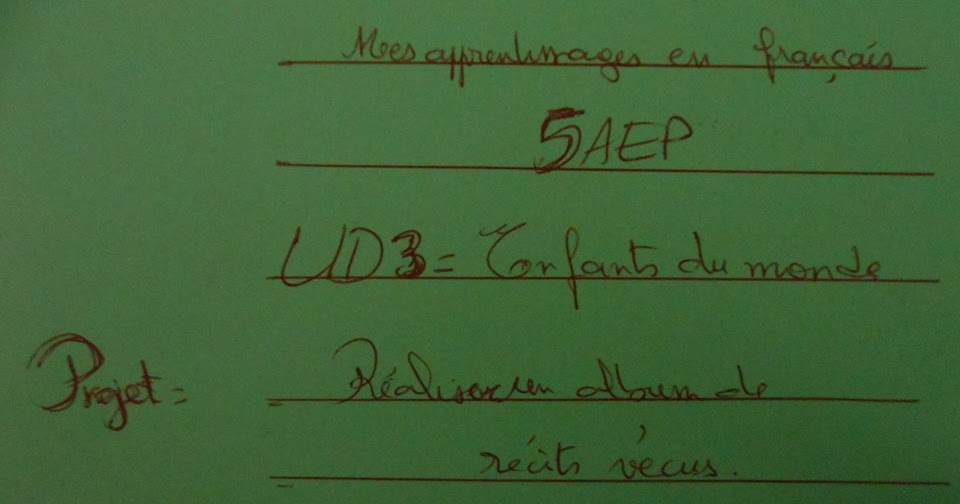 Mes apprentissages en français
5AEP
UD3= Enfants du monde
Projet= Réaliser un album de
récits vécus.